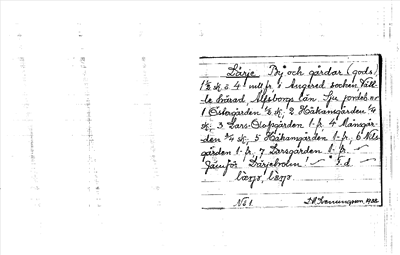 Lärje By och gårdar (gods)
1 sk. o 4 mtl fr. i Angered socken, Vätt-
le härad, Älfsborgs län. Sju jordeb. nr
1 Östergården sk, 2 Håkansgården 1/4
sk, 3 Lars-Olofsgården 1 fr, 4 Månsgår-
den 3/4 sk, 5 Håkansgården 1 fr, 6 Nils-
gården 1 fr, 7 Larsgården 1 fr.
Jämför Lärjeholm! s.d.
No 1.